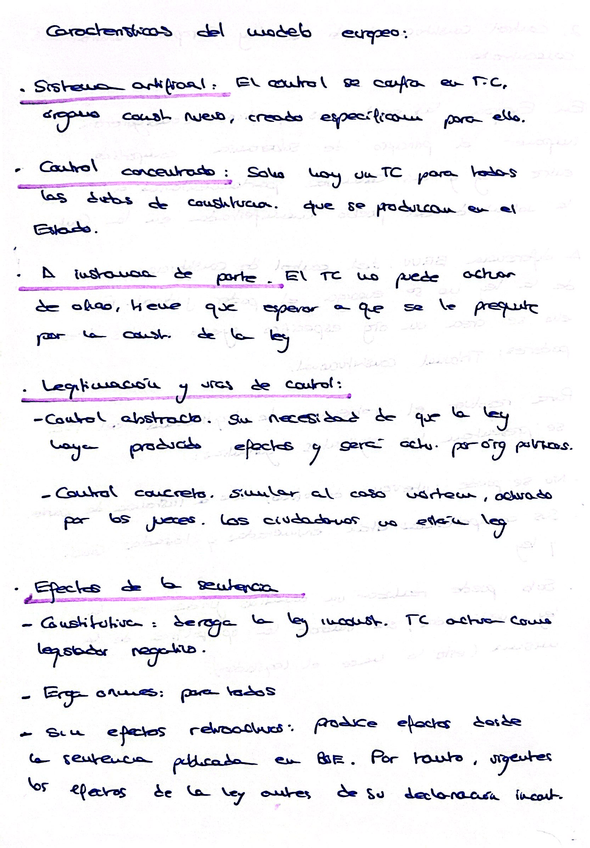 Características del modelo europeo:
· Sistema artificial: El control se confía en T.C,
órgano const nuevo, creado específicam para ello.
· Control concentrado: Solo hay un TC para todas
las dudas de constitucia. que se produzcan en el
Estado.
· A instancia de parte. El TC no puede actuar
de oficio, tiene que esperar a que se le pregunte
por la const. de la ley
· Legitimación y vías de control:
- Control abstracto. Sin necesidad de que la ley
haya producido efectos y será actv. por órg públicos.
- Control concreto. Similar al caso norteam, activado
por los jueces. Los ciudadanos no están leg
· Efectos de la sentencia
- Constitutiva: deroga la ley inconst. TC actúa como
legislador negativo.
- Erga omnes: para todos
- Sin efectos retroactivos: produce efectos desde
la sentencia publicada en BOE. Por tanto, vigentes
los efectos de la ley antes de su declaración inconst.